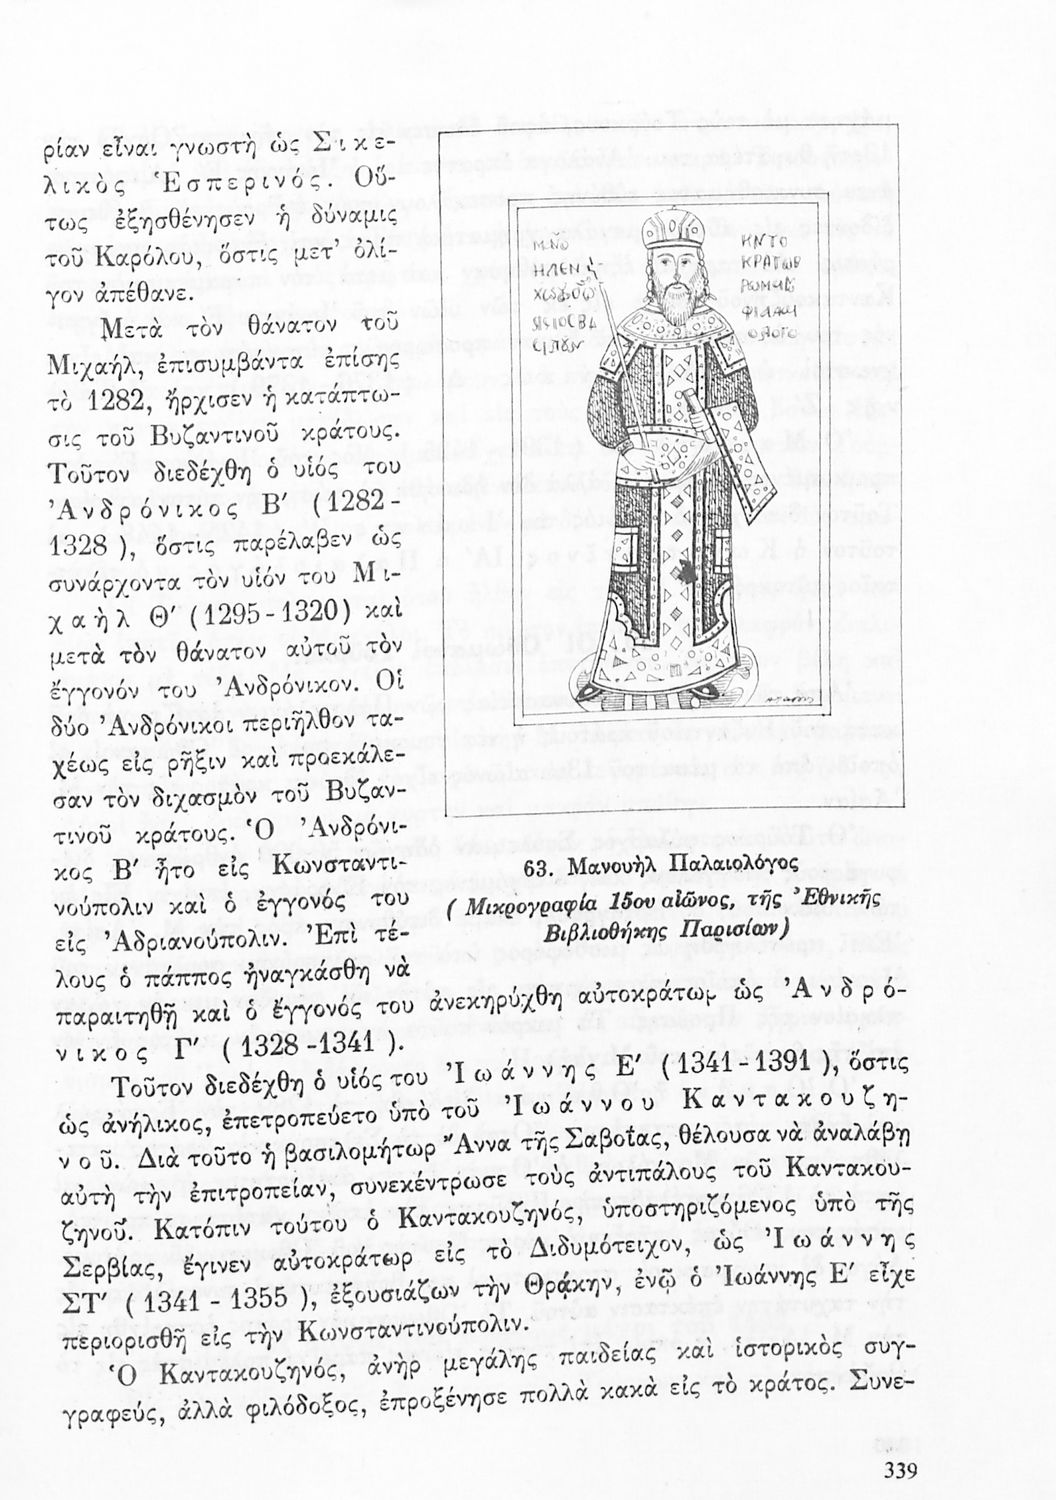 ρίαν εἶναι γνωστὴ ὡς Σικε-
λικὸς Ἑσπερινός. Οὕ-
τως ἐξησθένησεν ἡ δύναμις
τοῦ Καρόλου, ὅστις μετ' ὀλί-
γον ἀπέθανε.
Μετὰ τὸν θάνατον τοῦ
Μιχαήλ, ἐπισυμβάντα ἐπίσης
τὸ 1282, ἤρχισεν ἡ κατάπτω-
σις τοῦ Βυζαντινοῦ κράτους.
Τοῦτον διεδέχθη ὁ υἱός του
Ἀνδρόνικος Β' (1282-
1328), ὅστις παρέλαβεν ὡς
συνάρχοντα τὸν υἱόν του Μι-
χαὴλ Θ' (1295-1320) καὶ
μετὰ τὸν θάνατον αὐτοῦ τὸν
ἔγγονόν του Ἀνδρόνικον. Οἱ
δύο Ἀνδρόνικοι περιῆλθον τα-
χέως εἰς ρῆξιν καὶ προεκάλε-
σαν τὸν διχασμὸν τοῦ Βυζαν-
τινοῦ κράτους. Ὁ Ἀνδρόνι-
κος Β' ἦτο εἰς Κωνσταντι-
νούπολιν καὶ ὁ ἔγγονός του
εἰς Ἀδριανούπολιν. Ἐπὶ τέ-
λους ὁ πάππος ἠναγκάσθη νὰ
παραιτηθῇ καὶ ὁ ἔγγονός του ἀνεκηρύχθη αὐτοκράτωρ ὡς Ἀνδρό-
νικος Γ' (1328-1341).
Τοῦτον διεδέχθη ὁ υἱός του Ἰωάννης Ε' (1341-1391), ὅστις
ὡς ἀνήλικος, ἐπετροπεύετο ὑπὸ τοῦ Ἰωάννου Καντακουζη-
νοῦ. Διὰ τοῦτο ἡ βασιλομήτωρ Ἄννα τῆς Σαβοΐας, θέλουσα νὰ ἀναλάβῃ
αὐτὴ τὴν ἐπιτροπείαν, συνεκέντρωσε τοὺς ἀντιπάλους τοῦ Καντακου-
ζηνοῦ. Κατόπιν τούτου ὁ Καντακουζηνός, ὑποστηριζόμενος ὑπὸ τῆς
Σερβίας, ἔγινεν αὐτοκράτωρ εἰς τὸ Διδυμότειχον, ὡς Ἰωάννης
ΣΤ' (1341 - 1355), ἐξουσιάζων τὴν Θράκην, ἐνῷ ὁ Ἰωάννης Ε' εἶχε
περιορισθῆ εἰς τὴν Κωνσταντινούπολιν.
Ὁ Καντακουζηνός, ἀνὴρ μεγάλης παιδείας καὶ ἱστορικὸς συγ-
γραφεύς, ἀλλὰ φιλόδοξος, ἐπροξένησε πολλὰ κακὰ εἰς τὸ κράτος. Συνε-
63. Μανουὴλ Παλαιολόγος
(Μικρογραφία 15ου αἰῶνος, τῆς Ἐθνικῆς
Βιβλιοθήκης Παρισίων)
339